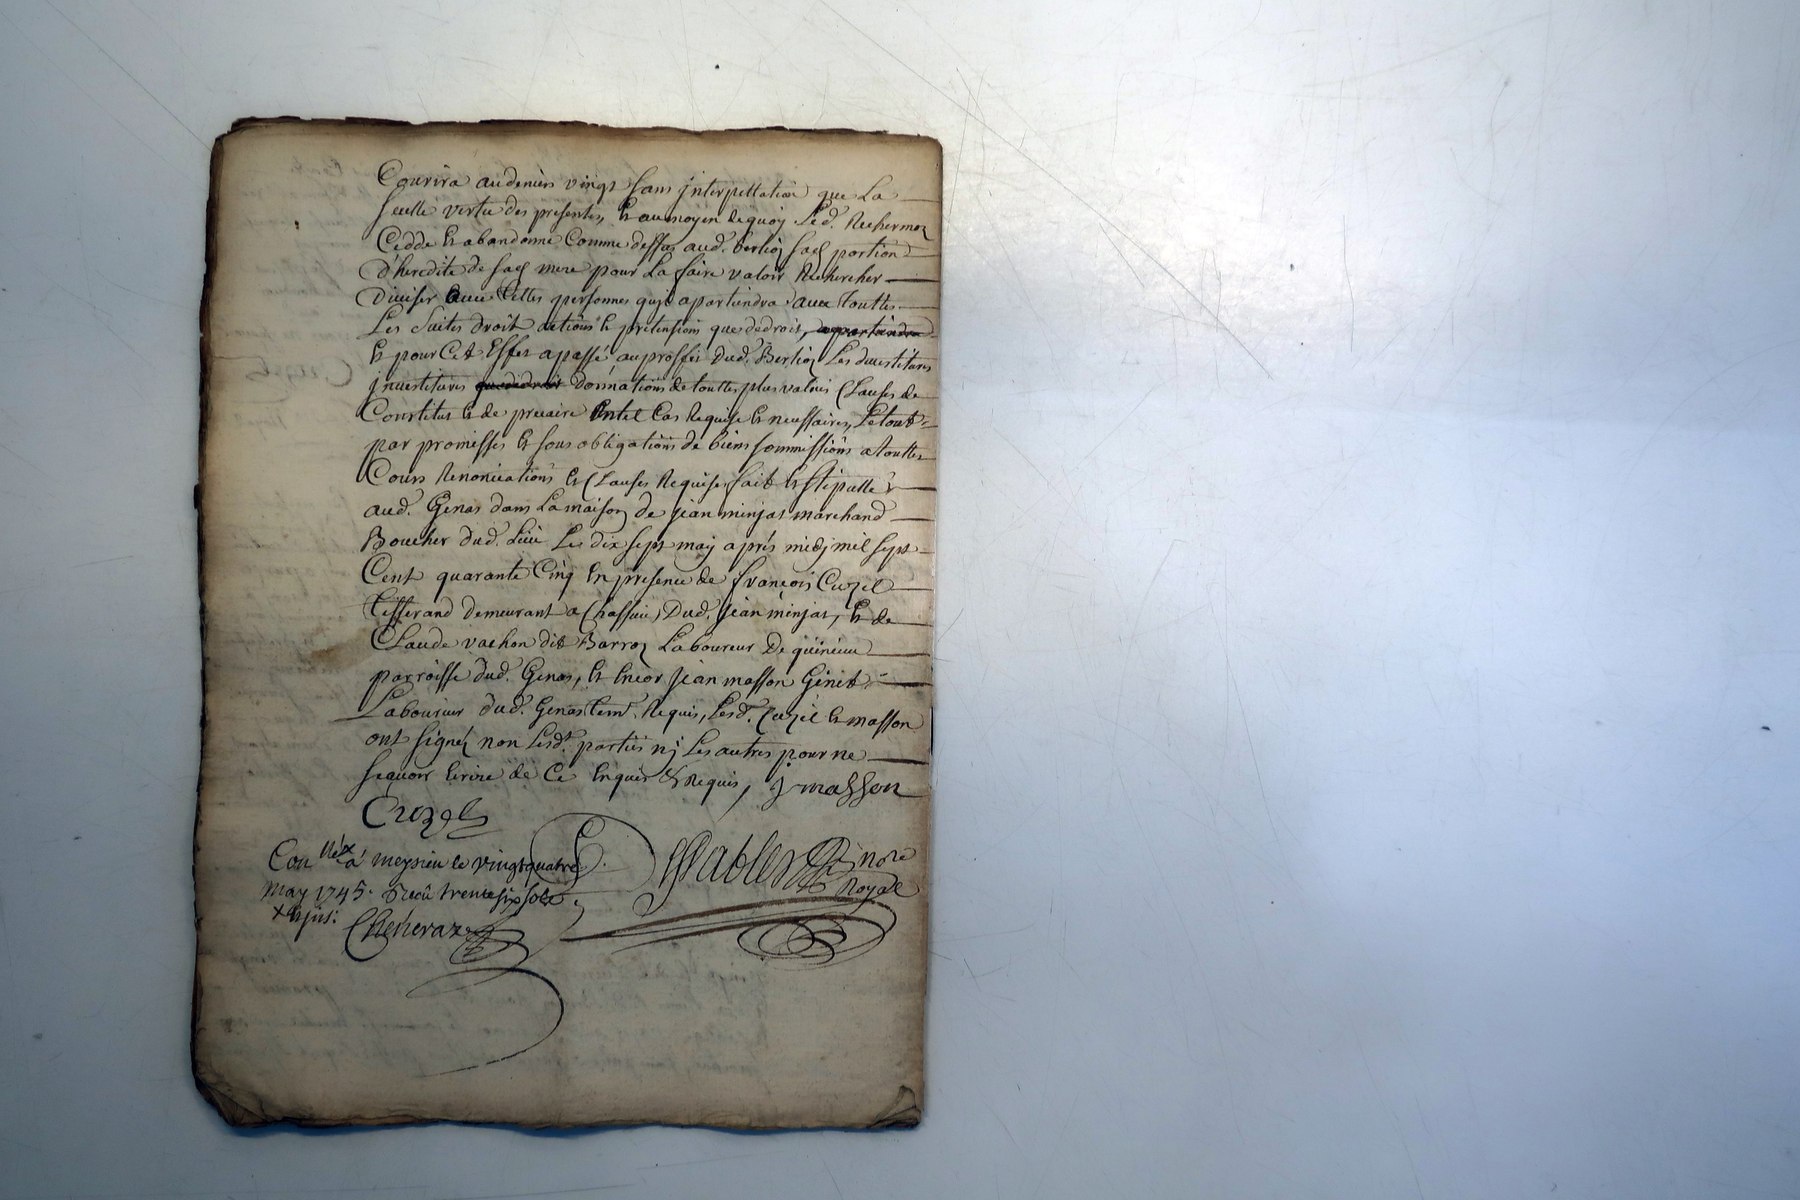 Courira au deniers vingt sans jnterpellation que La
seulle vertu des presentes, Et au moyen de quoy Led. Rechermoz
Cedde Et abandonne Comme dessus aud. berlioz sad portion
d'heredité de sad mere pour La faire valoir Rechercher
Diviser avec telles personnes quil apartiendra avec touttes
Les suites droit actions Et pretensions que de droit, apartiendra
Et pour Cet Effet a passé au proffit Dud. Berlioz Les devestitures
jnvestitures que de droit donnations de touttes plus values Clauses de
Constitut Et de precaire En tel Cas Requise Et necessaires, Le tout
par promesses Et sous obligations de biens sommissions a touttes
Cours Renonciations Et Clauses Requises fait Et stipullé
aud. Genas dans La maison de jean minjat marchand
Boucher dud. Lieu Le dix sept may après midj mil sept
Cent quarante Cinq En presence de françois Cuzil
tisserand demeurant a Chassieu, Dud. jean minjat, Et de
Claude vachon dit Barroz Laboureur De
parroisse dud. Genas, Et Encor jean masson Genet
Laboureur dud. Genas tem. Requis, Lesd. Cuzil Et masson
ont signéz non Lesd. parties nj Les autres pour ne
sçavoir Ecrire de Ce Enquis & Requis, j masson
Cuzel
Con llé a meysieu le vingt quatre
may 1745. Recû trente six sols
Sablers nore
Royal
Cheneraz